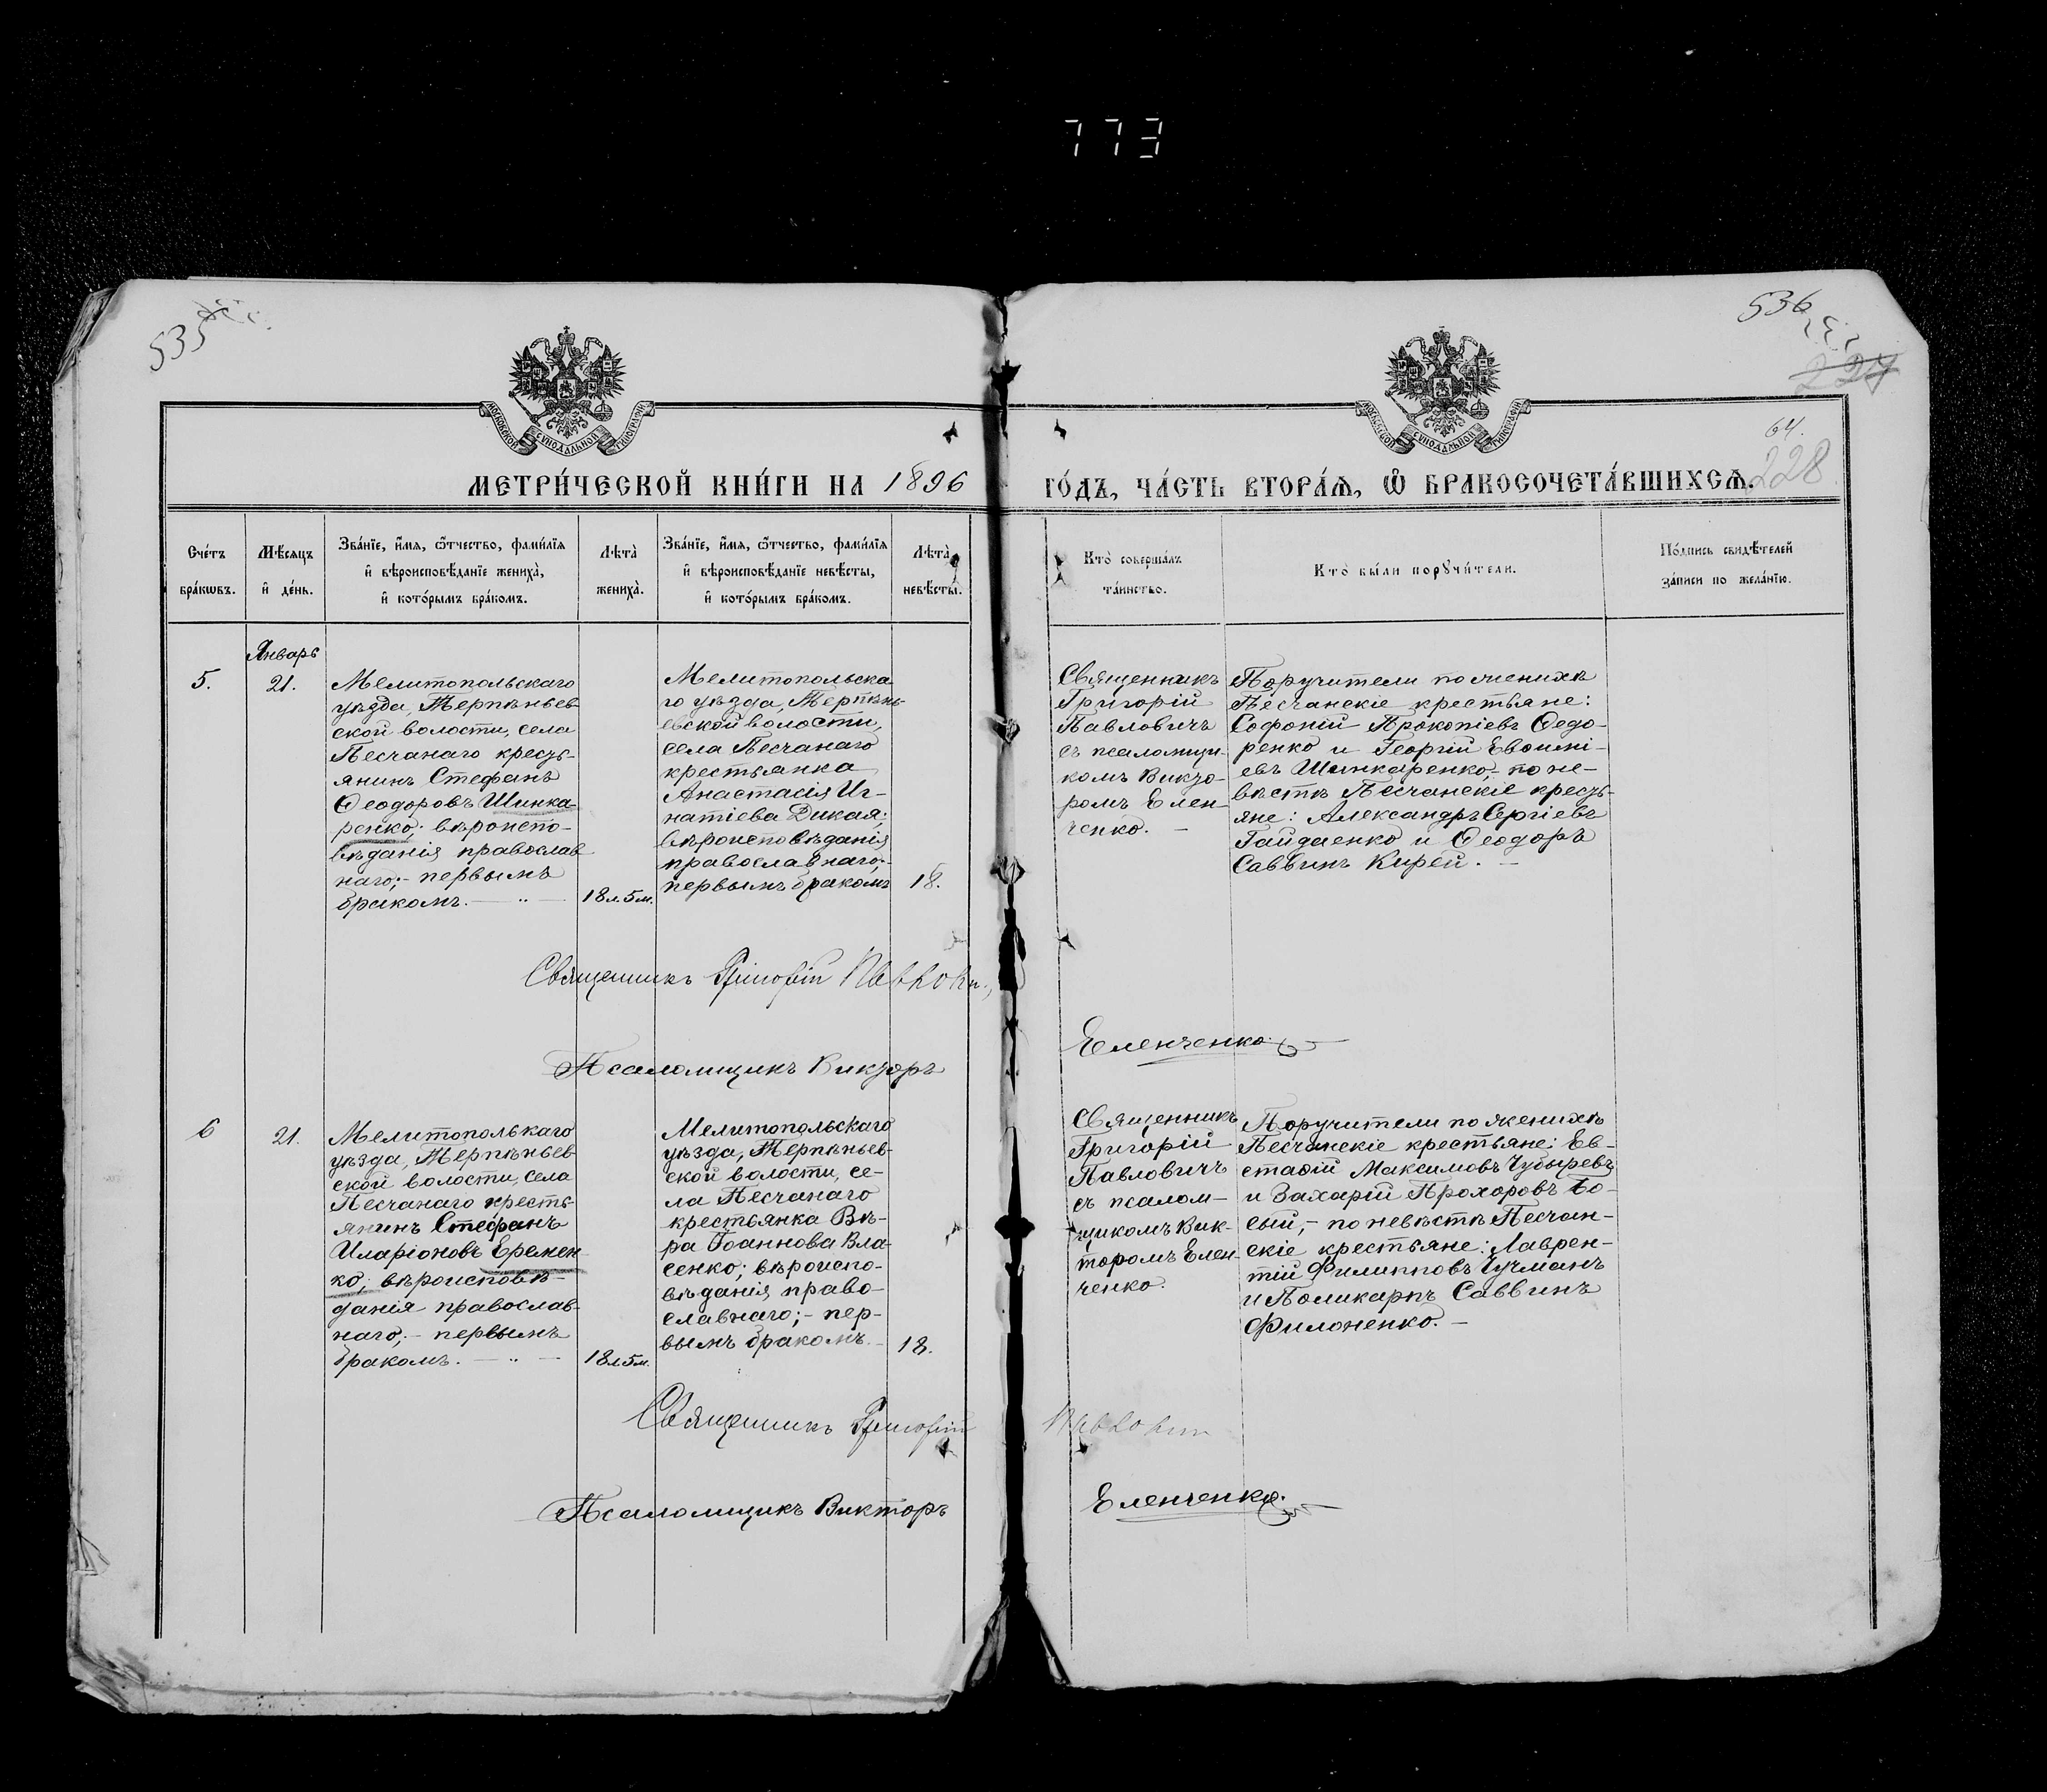 773
535
536
227
МОСКОВСКОЙ СУНОДАЛЬНОЙ ТИПОГРАФІИ
МОСКОВСКОЙ СУНОДАЛЬНОЙ ТИПОГРАФІИ
64.
228
МЕТРИ́ЧЕСКОЙ КНИ́ГИ НА 1896 ГО́ДЪ, ЧА́СТЬ ВТОРА́Ѧ, Ѽ БРАКОСОЧЕТА́ВШИХСѦ.
Сче́тъ бра́кѡвъ.
Мѣ́сяцъ и҆ де́нь.
Зва́нїе, и҆́мѧ, ѻ҆́тчество, фами́лїѧ и҆ вѣроисповѣ́данїе жениха̀, и҆ кото́рымъ бра́комъ.
Лѣта̀ жениха̀.
Зва́нїе, и҆́мѧ, ѻ҆́тчество, фами́лїѧ и҆ вѣроисповѣ́данїе невѣ́сты, и҆ кото́рымъ бра́комъ.
Лѣта̀ невѣ́сты.
Кто̀ соверша́лъ та́инство.
Кто̀ бы́ли порꙋчи́тели.
По́дпись свидѣ́телей за́писи по жела́нїю.
Январь
5.
21.
Мелитопольскаго
уѣзда, Терпѣньев
ской волости, села
Песчанаго кресть
янинъ Стефанъ
Ѳеодоровъ Шинка
ренко; вѣроиспо-
вѣданія православ
наго;- первымъ
бракомъ.
18л.5м.
Мелитопольска
го уѣзда, Терпѣнь-
евской волости,
села Песчанаго
крестьянка
Анастасія Иг-
натіева Дикая;
вѣроисповѣданія
православнаго;-
первымъ бракомъ
18.
Священникъ
Григорій
Павловичъ
съ псаломщи-
комъ Викто-
ромъ Елен
ченко. -
Поручители по женихѣ
Песчанскіе крестьяне:
Софоній Прокопіевъ Ѳедо-
ренко и Георгій Евѳимі-
евъ Шинкаренко,- по не-
вѣстѣ Песчанскіе кресть-
яне: Александръ Сергіевъ
Гайдаенко и Ѳеодоръ
Саввинъ Кирей. -
Священникъ Григорій Павлови
Псаломщикъ Викторъ Еленченко
6
21.
Мелитополькаго
уѣзда, Терпѣньев
ской волости, села
Песчанаго кресть
янинъ Стефанъ
Иларіоновъ Еремен
ко; вѣроисповѣ-
данія православ
наго;- первымъ
бракомъ.
18л.5м.
Мелитопольскаго
уѣзда, Терпѣньев-
ской волости, се-
ла Песчанаго
крестьянка Вѣ-
ра Іоаннова Вла-
сенко; вѣроиспо-
вѣданія право-
славнаго;- пер-
вымъ бракомъ.-
18.
Священникъ
Григорій
Павловичъ
съ псалом-
щикомъ Вик-
торомъ Елен-
ченко.
Поручители по женихѣ
Песчанскіе крестьяне: Ев-
стаѳій Максимовъ Чубыревъ
и Захарій Прохоровъ Бо-
сый,- по невѣстѣ Песчан-
скіе крестьяне: Лаврен-
тій Филипповъ Чучманъ
и Поликарпъ Саввинъ
Филоненко. -
Священникъ Григорій
Псаломщикъ Викторъ Еленченко.